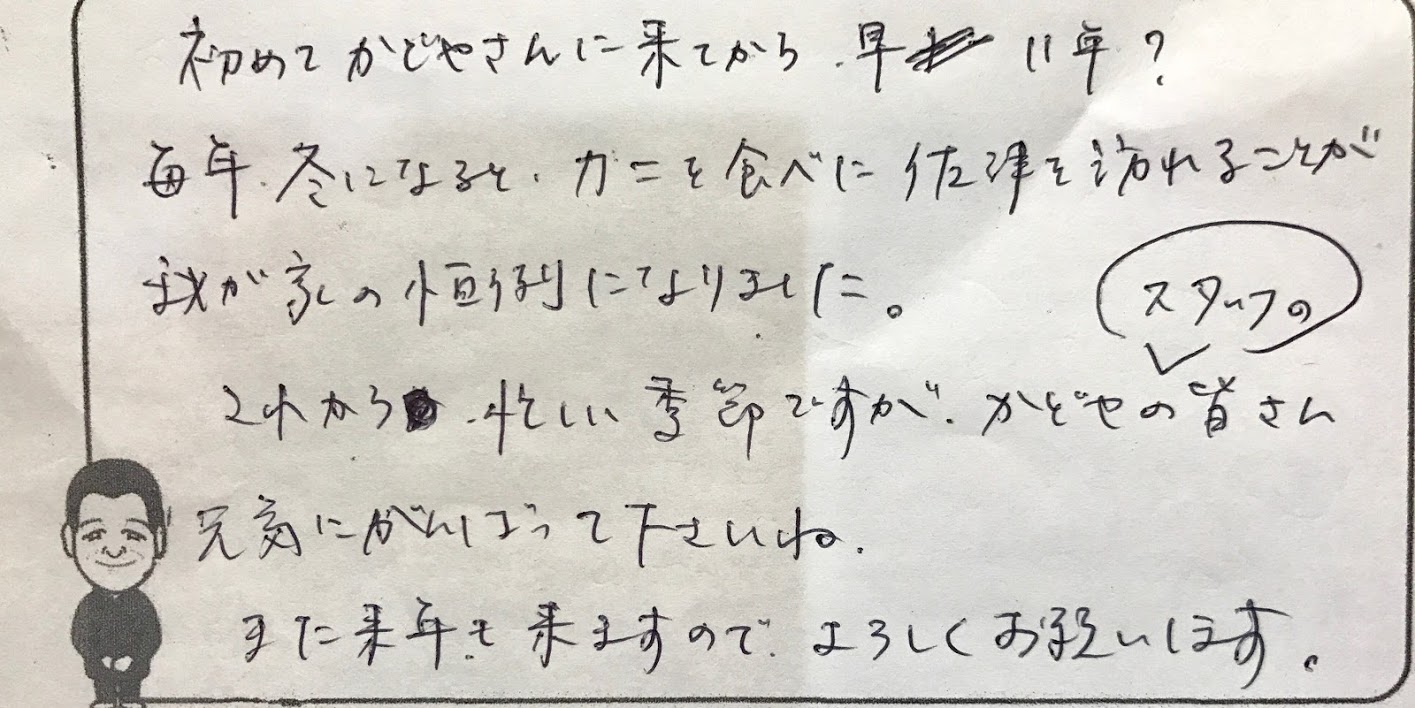 初めてかどやさんに来てから、早 11年?
毎年、冬になると、カニを食べに佐津を訪れることが
我が家の恒例になりました。
スタッフの
これから、忙しい季節ですが、かどやの皆さん
元気にがんばって下さいね。
また来年も来ますので、よろしくお願いします。